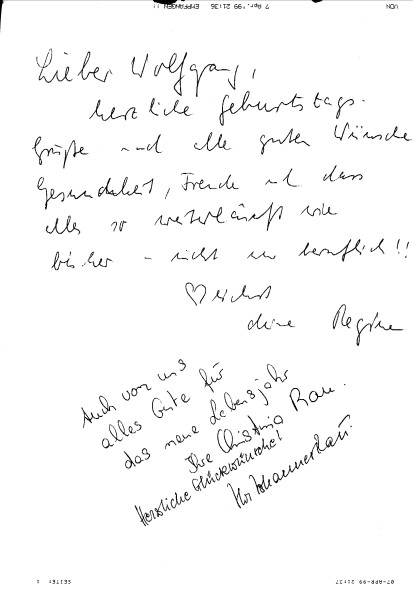 7 Apr. '99 21:36 EMPFANGEN
VON
Lieber Wolfgang,
herzliche Geburtstags-
Grüße und alle guten Wünsche
Gesundheit, Freude und dass
alles so weiterläuft wie
bisher – nicht nur beruflich!!
♡lichst
deine Regine
Auch von uns
alles Gute für
das neue Lebensjahr
Ihre Christina Rau.
Herzliche Glückwünsche!
Ihr Johannes Rau
SEITE: 1
07-APR-99 21:37